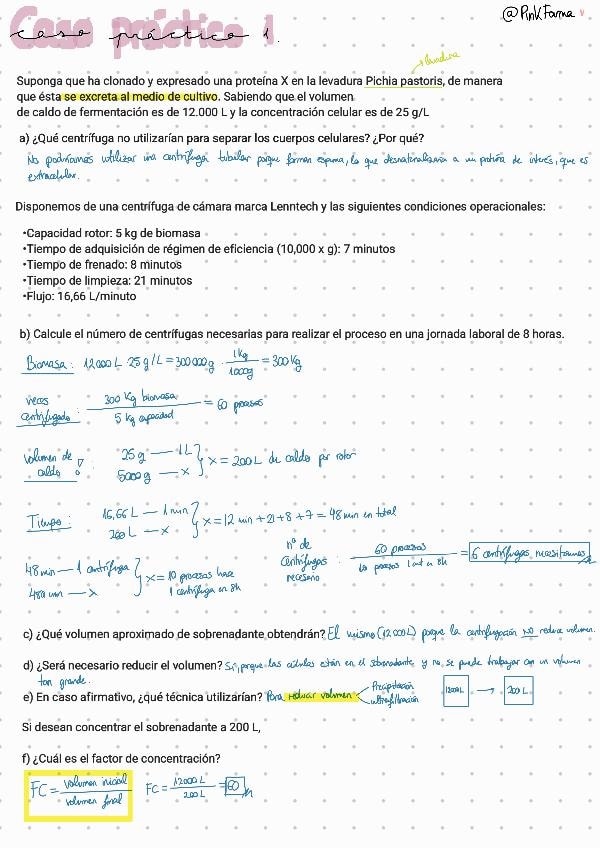 Caso práctico 1.
@PinkFarma
levadura
Suponga que ha clonado y expresado una proteína X en la levadura Pichia pastoris, de manera
que ésta se excreta al medio de cultivo. Sabiendo que el volumen
de caldo de fermentación es de 12.000 L y la concentración celular es de 25 g/L
a) ¿Qué centrífuga no utilizarían para separar los cuerpos celulares? ¿Por qué?
No podríamos utilizar una centrífuga tubular porque forman espuma, lo que desnaturalizaría a mi proteína de interés, que es
extracelular.
Disponemos de una centrífuga de cámara marca Lenntech y las siguientes condiciones operacionales:
•Capacidad rotor: 5 kg de biomasa
•Tiempo de adquisición de régimen de eficiencia (10,000 x g): 7 minutos
•Tiempo de frenado: 8 minutos
•Tiempo de limpieza: 21 minutos
•Flujo: 16,66 L/minuto
b) Calcule el número de centrífugas necesarias para realizar el proceso en una jornada laboral de 8 horas.
Biomasa: 12000 L · 25 g/L = 300000g · 1Kg / 1000g = 300 Kg
veces centrifugado: 300 Kg biomasa / 5 Kg capacidad = 60 procesos
Volumen de caldo: 25 g — 1 L
5000 g — x } x = 200 L de caldo por rotor
Tiempo: 16,66 L — 1 min
200 L — x } x = 12 min + 21 + 8 + 7 = 48 min en total
48 min — 1 centrífuga
480 min — x } x = 10 procesos hace 1 centrífuga en 8h
nº de centrífugas necesario: 60 procesos / 10 procesos 1 cent en 8h = 6 centrífugas necesitamos
c) ¿Qué volumen aproximado de sobrenadante obtendrán? El mismo (12000L) porque la centrifugación NO reduce volumen.
d) ¿Será necesario reducir el volumen? Sí, porque las células están en el sobrenadante y no se puede trabajar con un volumen
tan grande.
e) En caso afirmativo, ¿qué técnica utilizarían? Para reducir volumen
Precipitación
ultrafiltración
12000L → 200 L
Si desean concentrar el sobrenadante a 200 L,
f) ¿Cuál es el factor de concentración?
FC = volumen inicial / volumen final
FC = 12000 L / 200 L = 60